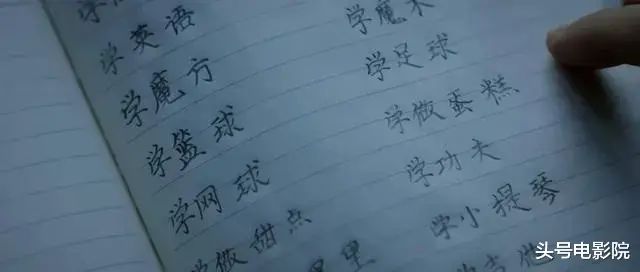 学英语
学魔方
学篮球
学网球
学做甜点
学魔术
学足球
学做蛋糕
学功夫
学小提琴
头号电影院